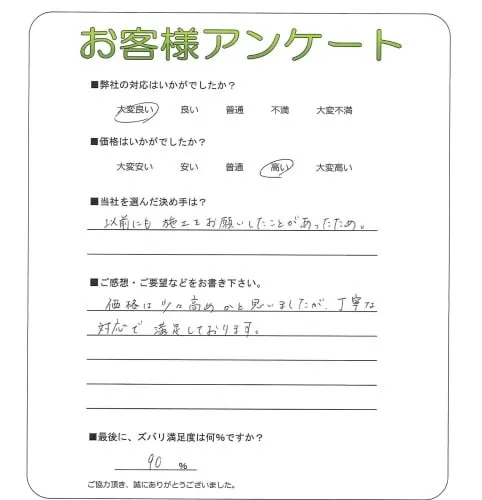 お客様アンケート
■弊社の対応はいかがでしたか？
大変良い 良い 普通 不満 大変不満
■価格はいかがでしたか？
大変安い 安い 普通 高い 大変高い
■当社を選んだ決め手は？
以前にも施工をお願いしたことがあったため。
■ご感想・ご要望などをお書き下さい。
価格は少々高めかと思いましたが、丁寧な
対応で満足しております。
■最後に、ズバリ満足度は何%ですか？
90 %
ご協力頂き、誠にありがとうございました。